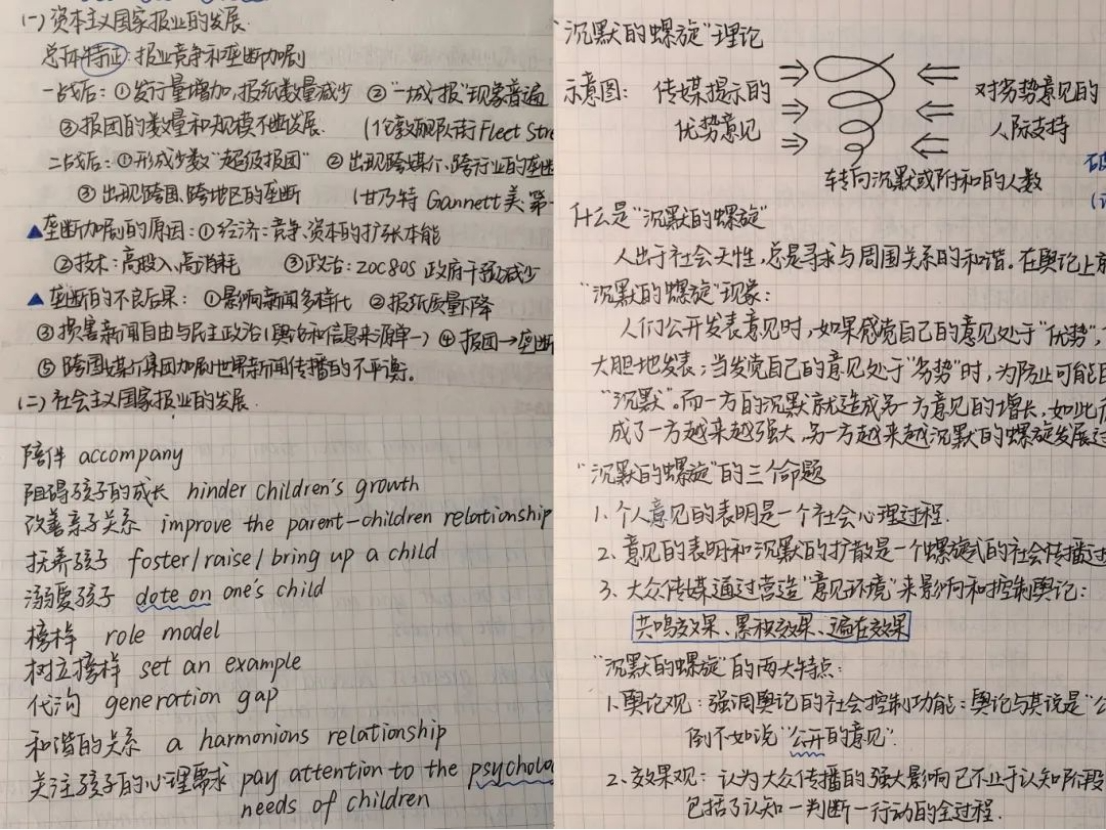 (一) 资本主义国家报业的发展.
总体特征: 报业竞争和垄断加剧
一战后: ①发行量增加,报纸数量减少 ②"一城一报"现象普遍
③报团的数量和规模不断发展. (伦敦舰队街 Fleet Stre
二战后: ①形成少数"超级报团" ②出现跨媒介、跨行业的垄断
③出现跨国、跨地区的垄断 (甘乃特 Gannett 美:第一
▲垄断加剧的原因: ①经济: 竞争、资本的扩张本能
②技术: 高投入、高消耗 ③政治: 20C80S 政府干预减少
▲垄断的不良后果: ①影响新闻多样化 ②报纸质量下降
③损害新闻自由与民主政治(舆论和信息来源单一) ④报团→垄断
⑤跨国媒介集团加剧世界新闻传播的不平衡.
(二) 社会主义国家报业的发展.
陪伴 accompany
阻碍孩子的成长 hinder children's growth
改善亲子关系 improve the parent-children relationship
抚养孩子 foster/raise/bring up a child
溺爱孩子 dote on one's child
榜样 role model
树立榜样 set an example
代沟 generation gap
和谐的关系 a harmonions relationship
关注孩子的心理需求 pay attention to the psycholo
needs of children
"沉默的螺旋"理论
示意图: 传媒提示的 对劣势意见的
优势意见 人际支持
转向沉默或附和的人数
什么是"沉默的螺旋"
人出于社会天性,总是寻求与周围关系的和谐.在舆论上
"沉默的螺旋"现象:
人们公开发表意见时,如果感觉自己的意见处于"优势",
大胆地发表;当发觉自己的意见处于"劣势"时,为防止可能
"沉默".而一方的沉默就造成另一方意见的增长,如此
成了一方越来越强大,另一方越来越沉默的螺旋发展过
"沉默的螺旋"的三个命题
1. 个人意见的表明是一个社会心理过程.
2. 意见的表明和沉默的扩散是一个螺旋式的社会传播过
3. 大众传媒通过营造"意见环境"来影响和控制舆论:
共鸣效果、累积效果、遍在效果
"沉默的螺旋"的两大特点:
1. 舆论观: 强调舆论的社会控制功能: 舆论与其说是"公
倒不如说"公开的意见".
2. 效果观: 认为大众传播的强大影响已不止于认知阶段
包括了认知—判断—行动的全过程.